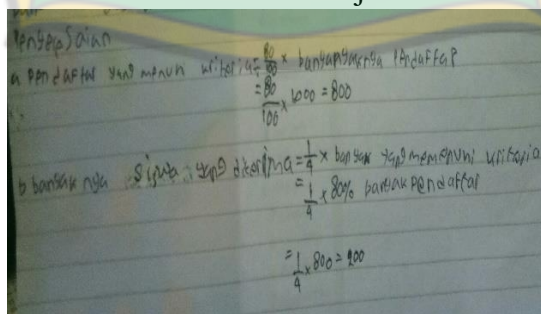 Penyelesaian
a Pendaftar yang menuhi kriteria = 80/100 × banyanyaknya Pendaftar
= 80/100 × 1000 = 800
b banyak nya siswa yang diterima = 1/4 × banyak yang memenuhi kriteria
= 1/4 × 80% banyak Pendaftar
= 1/4 × 800 = 200